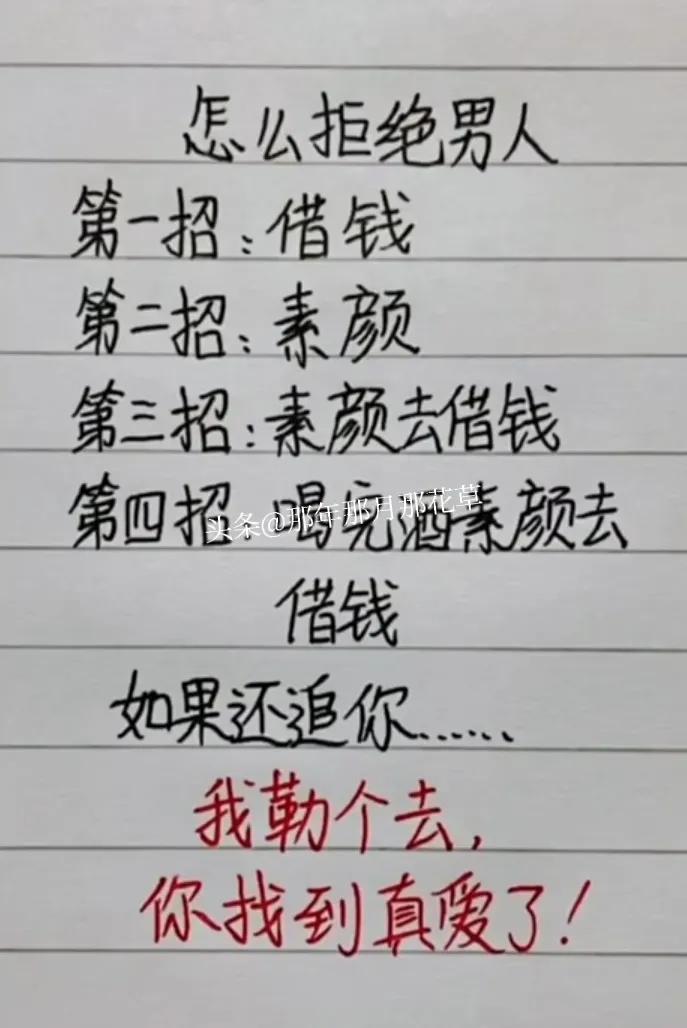 怎么拒绝男人
第一招:借钱
第二招:素颜
第三招:素颜去借钱
第四招:喝完酒素颜去
借钱
头条@那年那月那花草
如果还追你......
我勒个去,
你找到真爱了!